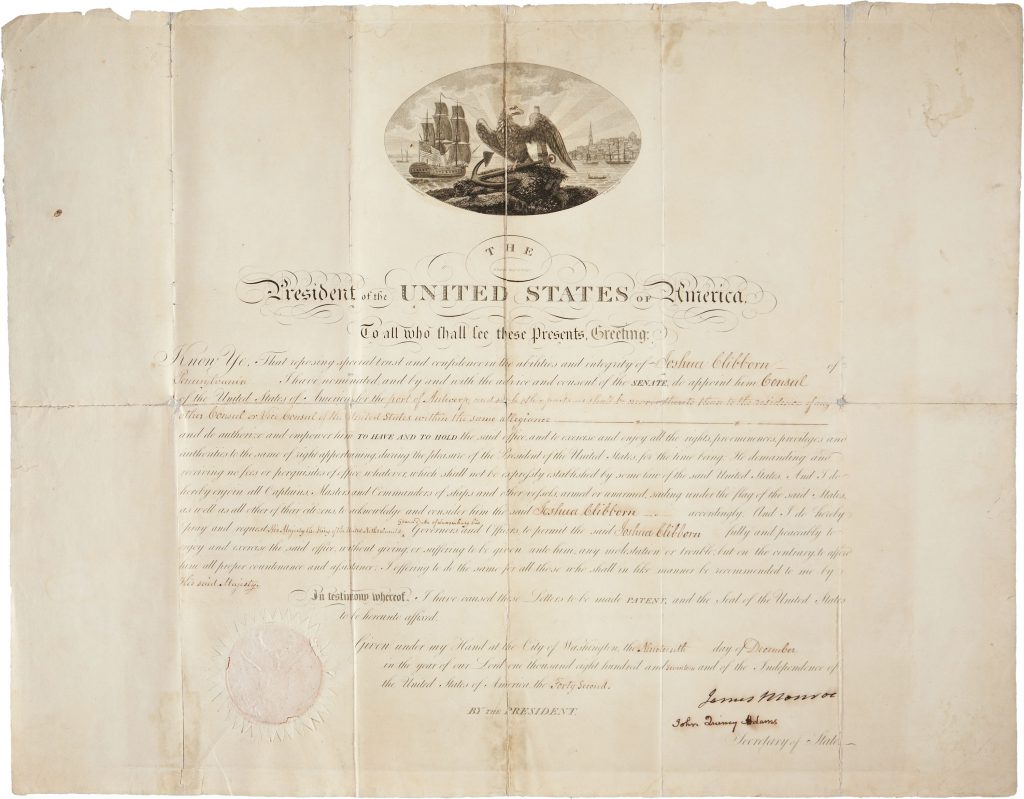 THE
President of the UNITED STATES OF America,
To all who shall see these Presents, Greeting:
Know Ye, That reposing special trust and confidence in the abilities and integrity of Joshua Clibborn of
Pennsylvania I have nominated, and by and with the advice and consent of the SENATE, do appoint him Consul
of the United States of America, for the port of Antwerp, and such other parts as shall be nearer thereto than to the residence of any
other Consul or Vice Consul of the United States within the same allegiance
and do authorize and empower him TO HAVE AND TO HOLD the said office, and to exercise and enjoy all the rights, preeminences, privileges and
authorities to the same of right appertaining, during the pleasure of the President of the United States, for the time being. He demanding and
receiving no fees or perquisites of office whatever, which shall not be expressly established by some law of the said United States. And I do
hereby enjoin all Captains, Masters and Commanders of ships and other vessels, armed or unarmed, sailing under the flag of the said States,
as well as all other of their citizens, to acknowledge and consider him the said Joshua Clibborn accordingly. And I do hereby
pray and request His Majesty the King of the United Netherlands, Grand Duke of Luxembourg, his Governors and Officers to permit the said Joshua Clibborn fully and peaceably to
enjoy and exercise the said office, without giving or suffering to be given unto him, any molestation or trouble, but on the contrary, to afford
him all proper countenance and assistance. I offering to do the same for all those who shall in like manner be recommended to me by
His said Majesty.
In testimony whereof, I have caused these Letters to be made PATENT, and the Seal of the United States
to be hereunto affixed.
Given under my Hand at the City of Washington, the Nineteenth day of December
in the year of our Lord one thousand eight hundred and seventeen and of the Independence of
the United States of America, the Forty Second.
James Monroe
BY THE PRESIDENT,
John Quincy Adams
Secretary of State